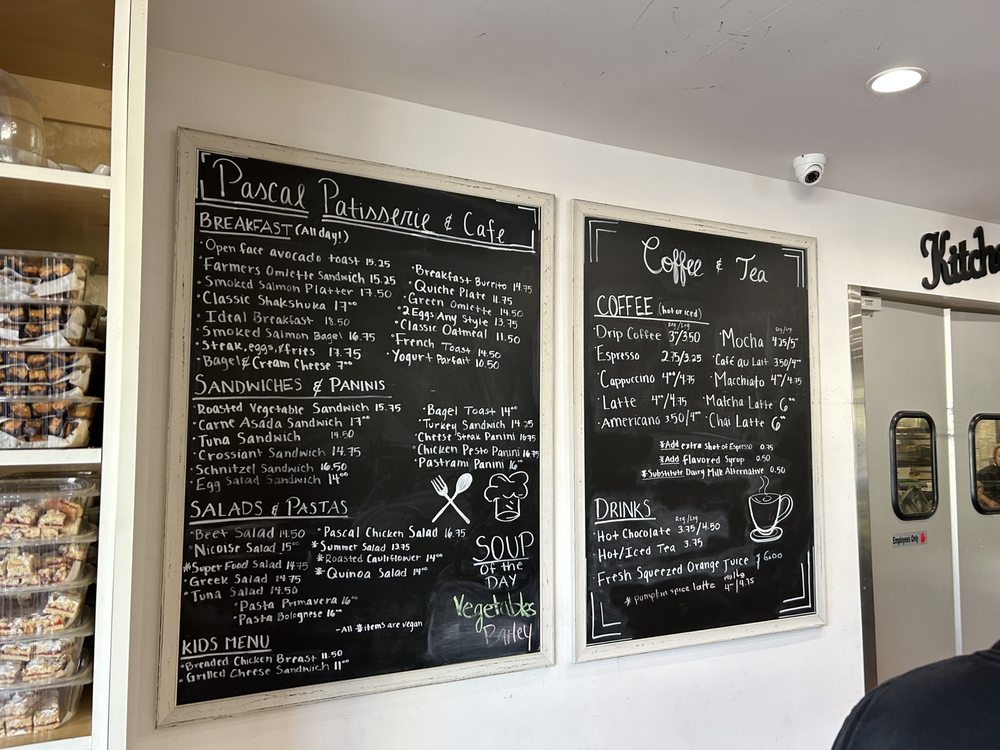 Pascal Patisserie & Cafe
BREAKFAST (All day!)
· Open face avocado toast 15.25
· Farmers Omlette Sandwich 15.25
· Smoked Salmon Platter 17.50
· Classic Shakshuka 17⁰⁰
· Ideal Breakfast 18.50
· Smoked Salmon Bagel 16.75
· Steak, eggs, & fries 17.75
· Bagel & Cream Cheese 7⁰⁰
· Breakfast Burrito 14.75
· Quiche Plate 11.75
· Green Omlette 14.50
· 2 Eggs Any Style 13.75
· Classic Oatmeal 11.50
· French Toast 14.50
· Yogurt Parfait 10.50
SANDWICHES & PANINIS
· Roasted Vegetable Sandwich 15.75
· Carne Asada Sandwich 17⁰⁰
· Tuna Sandwich 14.50
· Crossiant Sandwich 14.75
· Schnitzel Sandwich 16.50
· Egg Salad Sandwich 14⁰⁰
· Bagel Toast 14⁰⁰
· Turkey Sandwich 14.25
· Cheese Steak Panini 16.75
· Chicken Pesto Panini 16.75
· Pastrami Panini 16⁰⁰
SALADS & PASTAS
· Beet Salad 14.50
· Nicoise Salad 15⁰⁰
*Super Food Salad 14.75
· Greek Salad 14.75
· Tuna Salad 14.50
· Pascal Chicken Salad 16.75
* Summer Salad 13.75
*Roasted Cauliflower 14⁰⁰
* Quinoa Salad 14⁰⁰
· Pasta Primavera 16⁰⁰
· Pasta Bolognese 16⁰⁰
-All * items are vegan
SOUP
OF the
DAY
Vegetables
Barley
KIDS MENU
· Breaded Chicken Breast 11.50
· Grilled Cheese Sandwich 11⁰⁰
Coffee & Tea
COFFEE (hot or iced)
Reg / Lrg
· Drip Coffee 3⁰⁰/3.50
Espresso 2.75/3.25
· Cappuccino 4⁰⁰/4.75
· Latte 4⁰⁰/4.75
· Americano 3.50/4⁰⁰
Reg / Lrg
· Mocha 4.25/5⁰⁰
· Café au Lait 3.50/4⁰⁰
· Macchiato 4⁰⁰/4.75
· Matcha Latte 6⁰⁰
· Chai Latte 6⁰⁰
*Add extra shot of Espresso 0.75
*Add flavored Syrup 0.50
*Substitute Dairy Milk Alternative 0.50
DRINKS
Reg / Lrg
· Hot Chocolate 3.75/4.50
· Hot/Iced Tea 3.75
· Fresh Squeezed Orange Juice $ 6.00
* pumpkin spice latte
Kitche
Employees Only